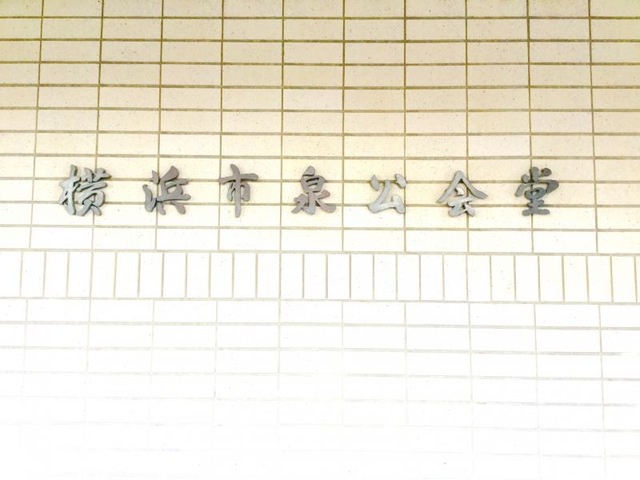 横浜市泉公会堂